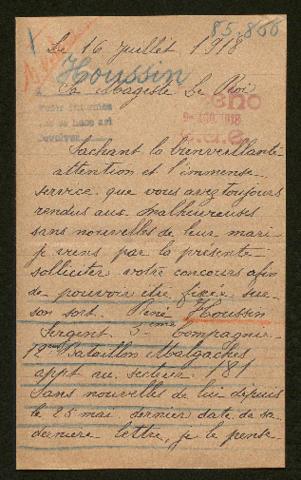 85,866
Le 16 Juillet 1918
Houssin
Sa Magesté Le Roi
1918
Sachant la bienveillante
attention et l'immense
service que vous avez toujours
rendus aux malheureuses
sans nouvelles de leur mari
je viens par la présente
solliciter votre concours afin
de pouvoir être fixée sur
son sort. René Houssin
Sergent 5ème Compagnie
12me Bataillon Malgaches
appt au secteur 181
Sans nouvelles de lui depuis
le 25 mai dernier date de sa
dernière lettre, je le pense